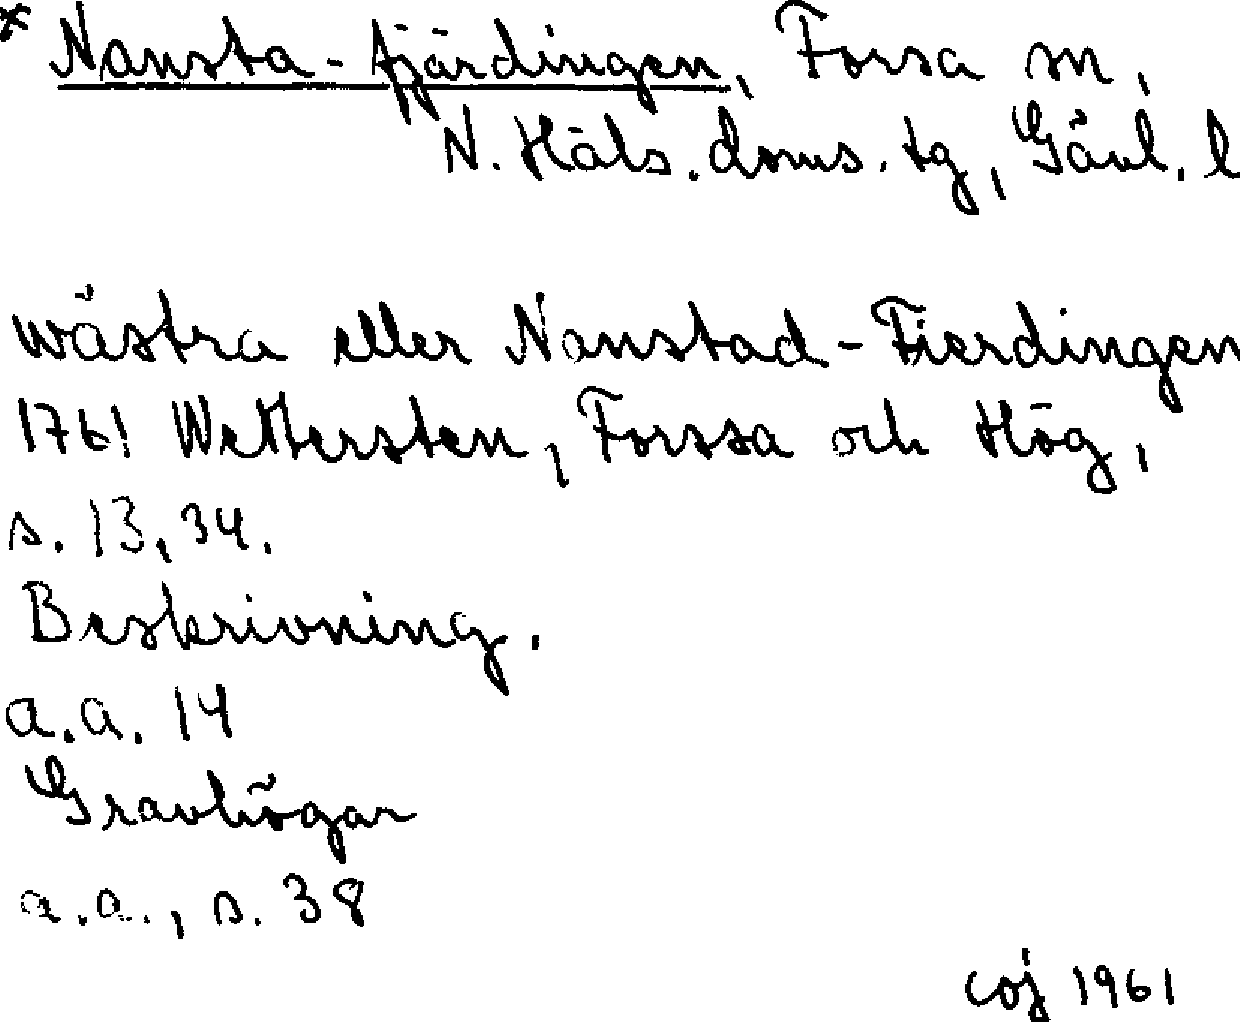 * Nansta-fjärdingen, Forsa sn,
N. Häls. doms. tg, Gävl. l
wästra eller Nanstad-Fierdingen
1761 Wettersten, Forssa och Hög,
s. 13, 34.
Beskrivning.
a.a. 14
Gravhögar
a.a., s. 38
coj 1961